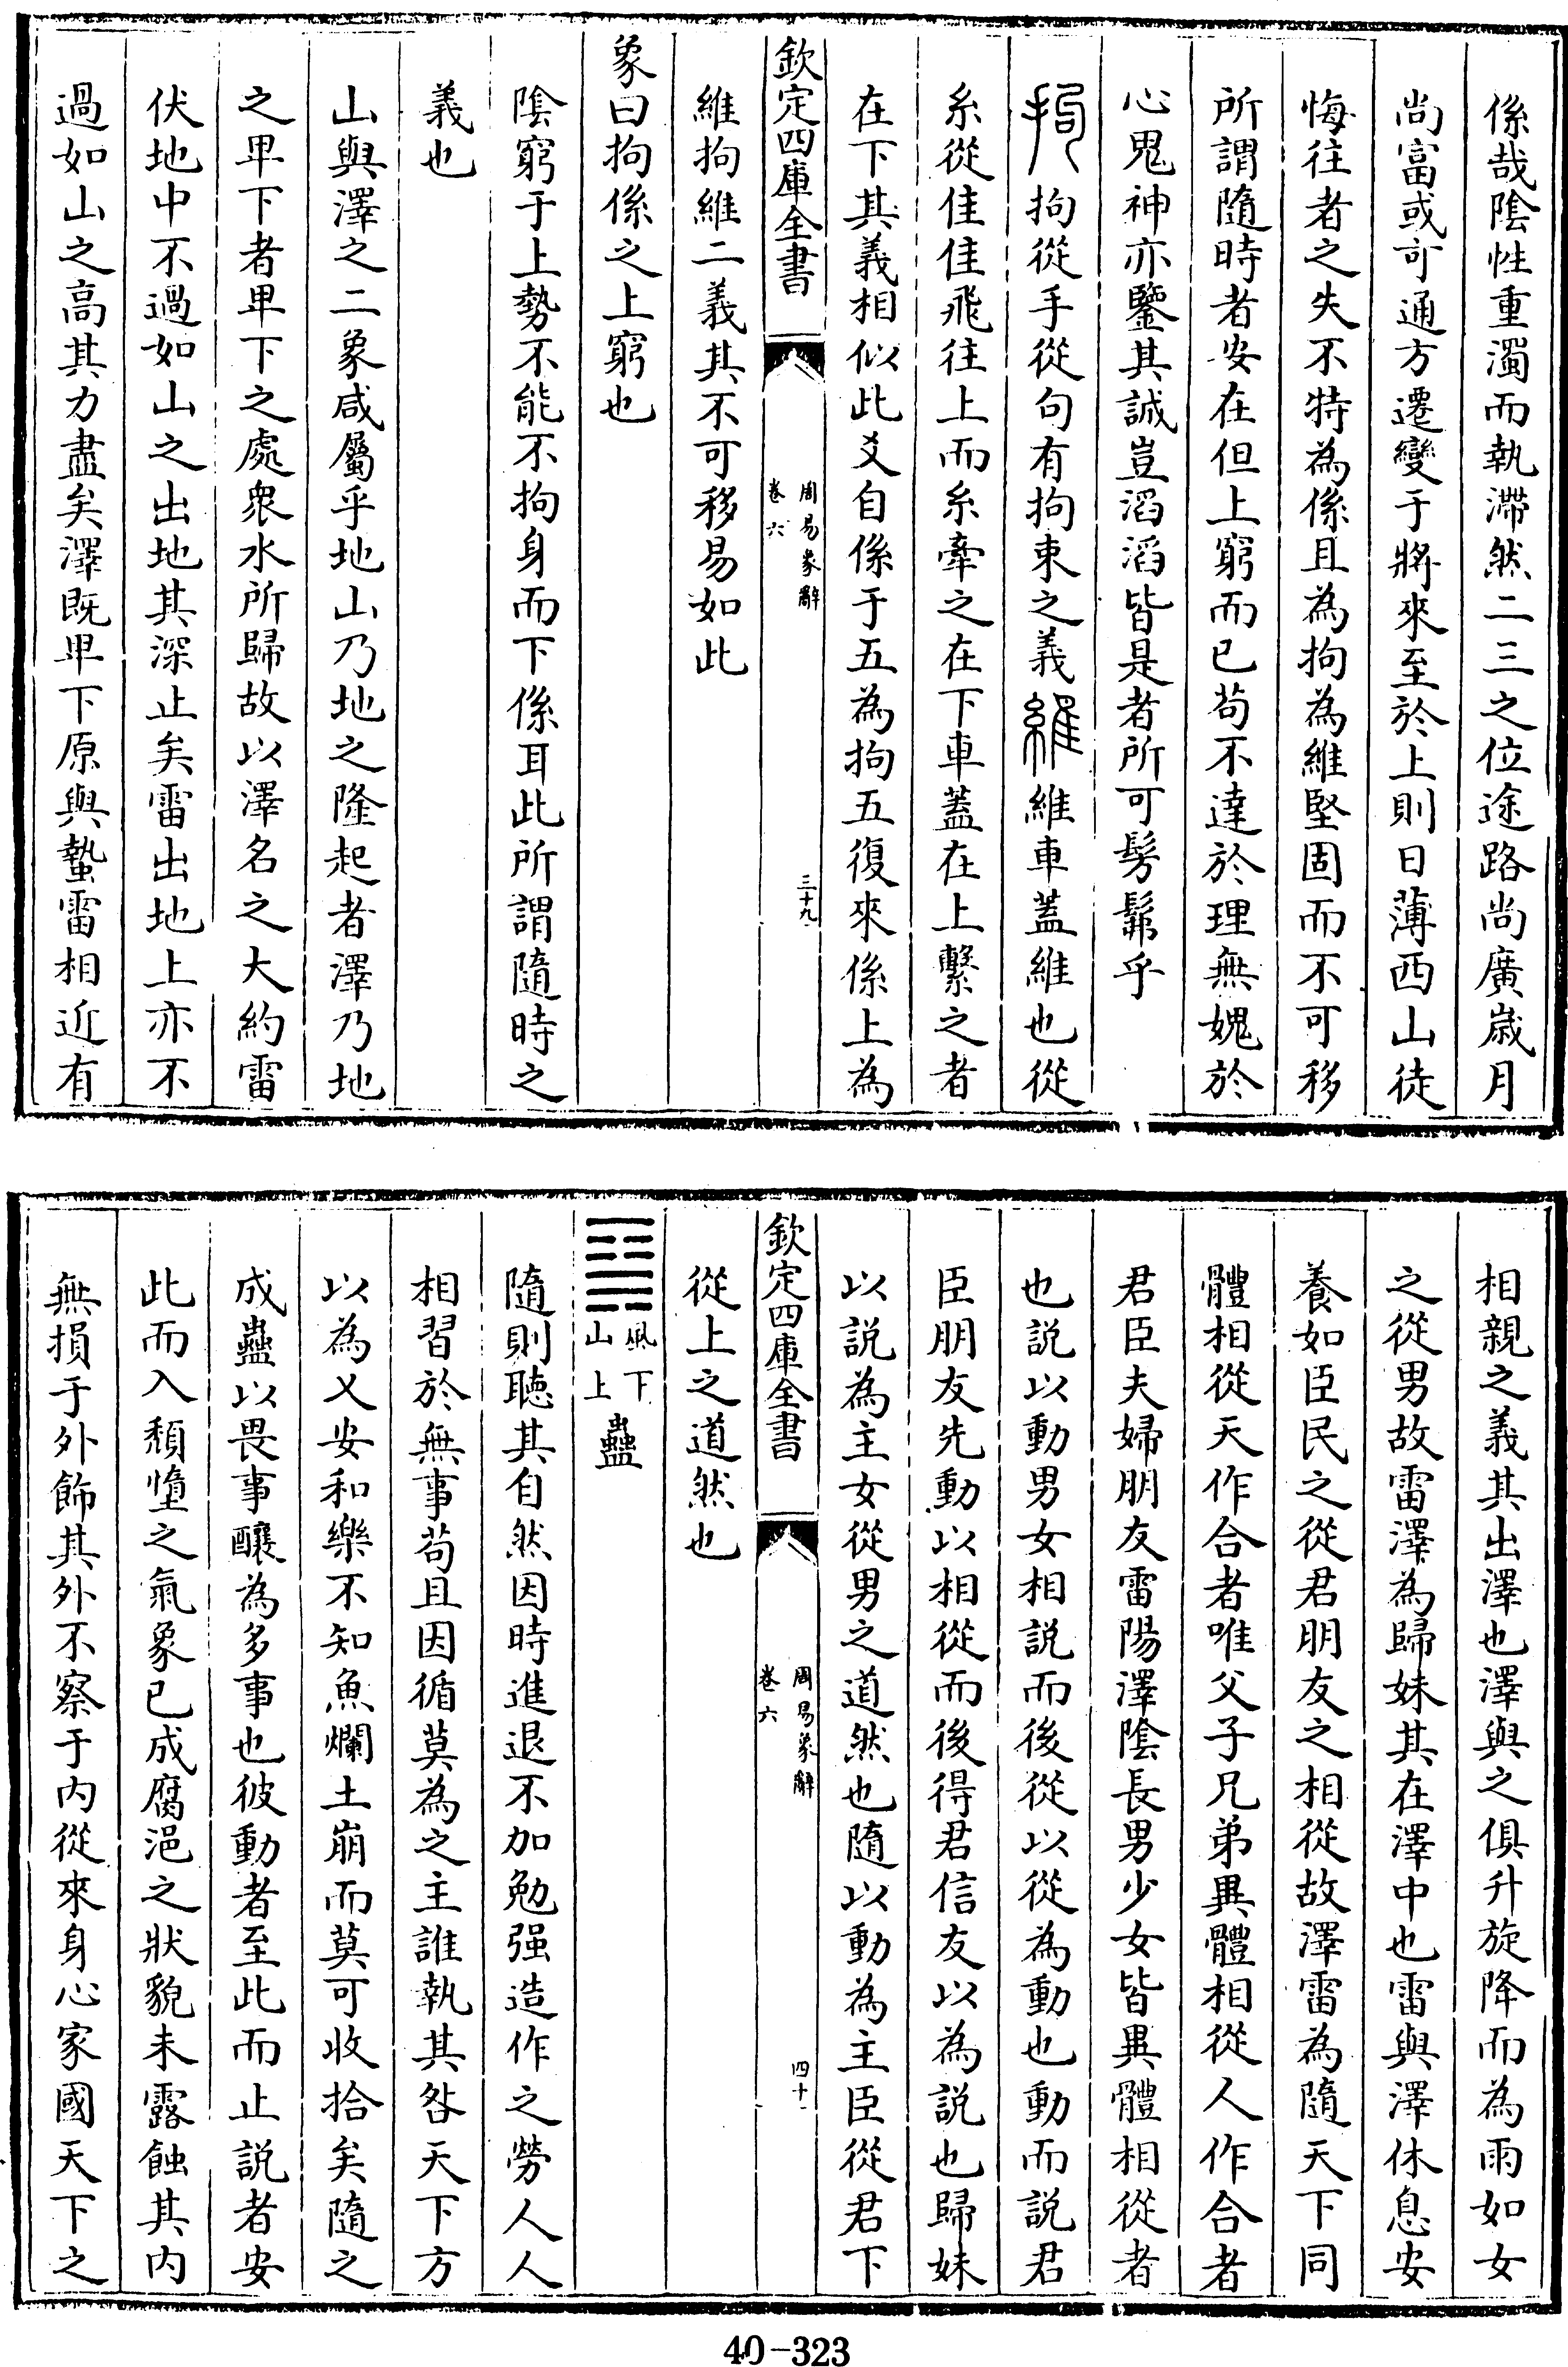 係哉陰性重濁而執滯然二三之位途路尚廣嵗月
尚富或可通方遷變于將來至於上則日薄西山徒
悔往者之失不特為係且為拘為維堅固而不可移
所謂隨時者安在但上窮而已苟不達於理無媿於
心鬼神亦鑒其誠豈滔滔皆是者所可髣髴乎
拘拘從手從句有拘束之義維維車蓋維也從
糸從隹隹飛往上而糸牽之在下車蓋在上繫之者
在下其義相似此爻自係于五為拘五復來係上為
欽定四庫全書
周易象辭
卷六
三十九
維拘維二義其不可移易如此
象曰拘係之上窮也
陰窮于上勢不能不拘身而下係耳此所謂隨時之
義也
山與澤之二象咸屬乎地山乃地之隆起者澤乃地
之卑下者卑下之處衆水所歸故以澤名之大約雷
伏地中不過如山之出地其深止矣雷出地上亦不
過如山之高其力盡矣澤既卑下原與蟄雷相近有
相親之義其出澤也澤與之俱升旋降而為雨如女
之從男故雷澤為歸妹其在澤中也雷與澤休息安
養如臣民之從君朋友之相從故澤雷為隨天下同
體相從天作合者唯父子兄弟異體相從人作合者
君臣夫婦朋友雷陽澤陰長男少女皆異體相從者
也説以動男女相説而後從以從為動也動而説君
臣朋友先動以相從而後得君信友以為説也歸妹
以説為主女從男之道然也隨以動為主臣從君下
欽定四庫全書
周易象辭
卷六
四十
從上之道然也
䷑
風下
山上
蠱
隨則聽其自然因時進退不加勉强造作之勞人人
相習於無事苟且因循莫為之主誰執其咎天下方
以為乂安和樂不知魚爛土崩而莫可收拾矣隨之
成蠱以畏事釀為多事也彼動者至此而止説者安
此而入頽惰之氣象已成腐浥之狀貌未露蝕其内
無損于外飾其外不察于内從來身心家國天下之